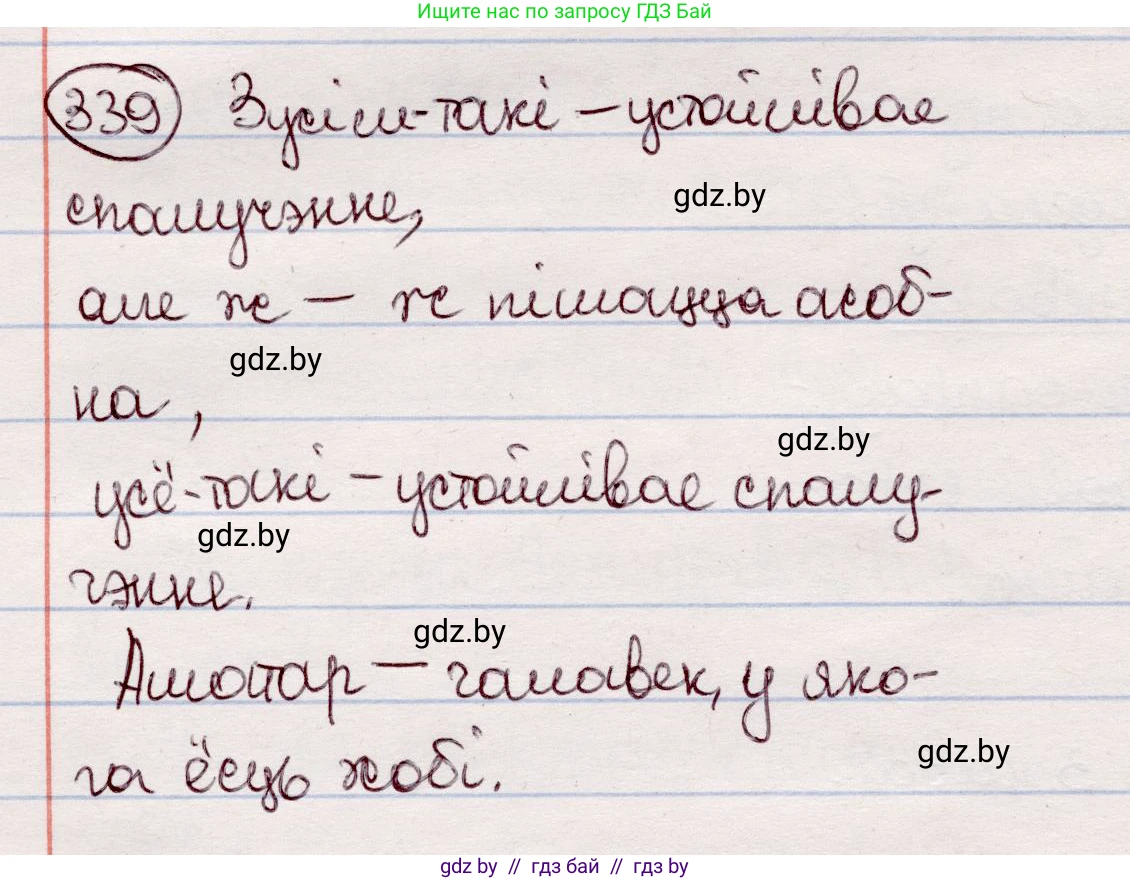 Ищите нас по запросу ГДЗ Бай
339 Зусім-такі – устойлівае
gdz.by
спалучэнне,
але ж – ж пішацца асоб-
gdz.by
на,
gdz.by
усё-такі – устойлівае спалу-
gdz.by
чэнне.
gdz.by
Аматар – чалавек, у яко-
gdz.by
га ёсць хобі.
gdz.by // гдз бай // гдз by